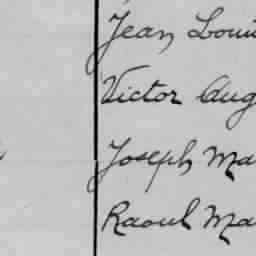 Jean Loui
Victor Aug
Joseph Ma
Raoul Ma